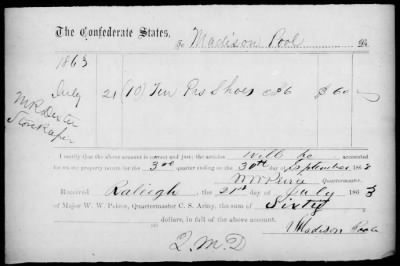 The Confederate States,
To Madison Pool Dr.
1863
July 21 (10) Ten Prs Shoes @ 6 $ 60
I certify that the above account is correct and just; the articles will be accounted
for on my property return for the 3rd quarter ending the 30th of September 1863
W W Peirce Quartermaster.
Received Raleigh, the 21st day of July 1863
of Major W. W. Peirce, Quartermaster C. S. Army, the sum of Sixty
dollars, in full of the above account.
Madison Pool
Q. M. D